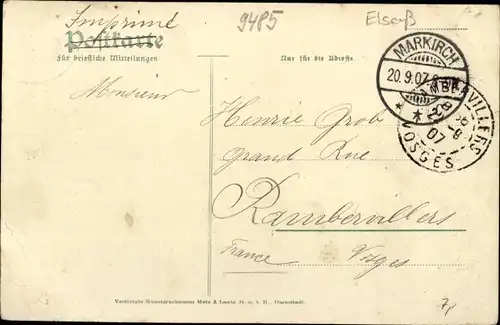 Imprimé
9485
Elsaß
Postkarte
Für briefliche Mitteilungen
Nur für die Adresse.
MARKIRCH
20.9.07
RAMBERVILLERS
07
VOSGES
Monsieur
Henrie Grob
grande Rue
Rambervillers
France Vosges
Vereinigte Kunstdruckereien Metz & Lautz G. m. b. H., Darmstadt.
7,